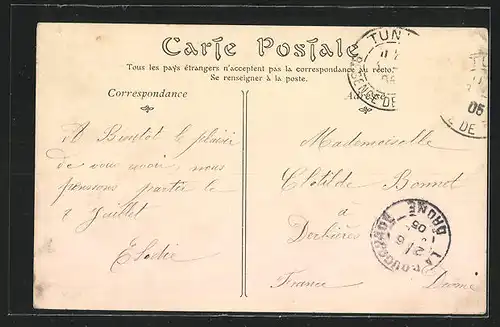 Carte Postale
Tous les pays étrangers n'acceptent pas la correspondance au recto.
Se renseigner à la poste.
Correspondance
A Bientot le plaisir
de vous voir, nous
pensons partir le
8 Juillet
Elodie
Mademoiselle
Clotilde Bonnet
à
France
Drome
TUN
05
DE
TU
05
DE
DROME
05